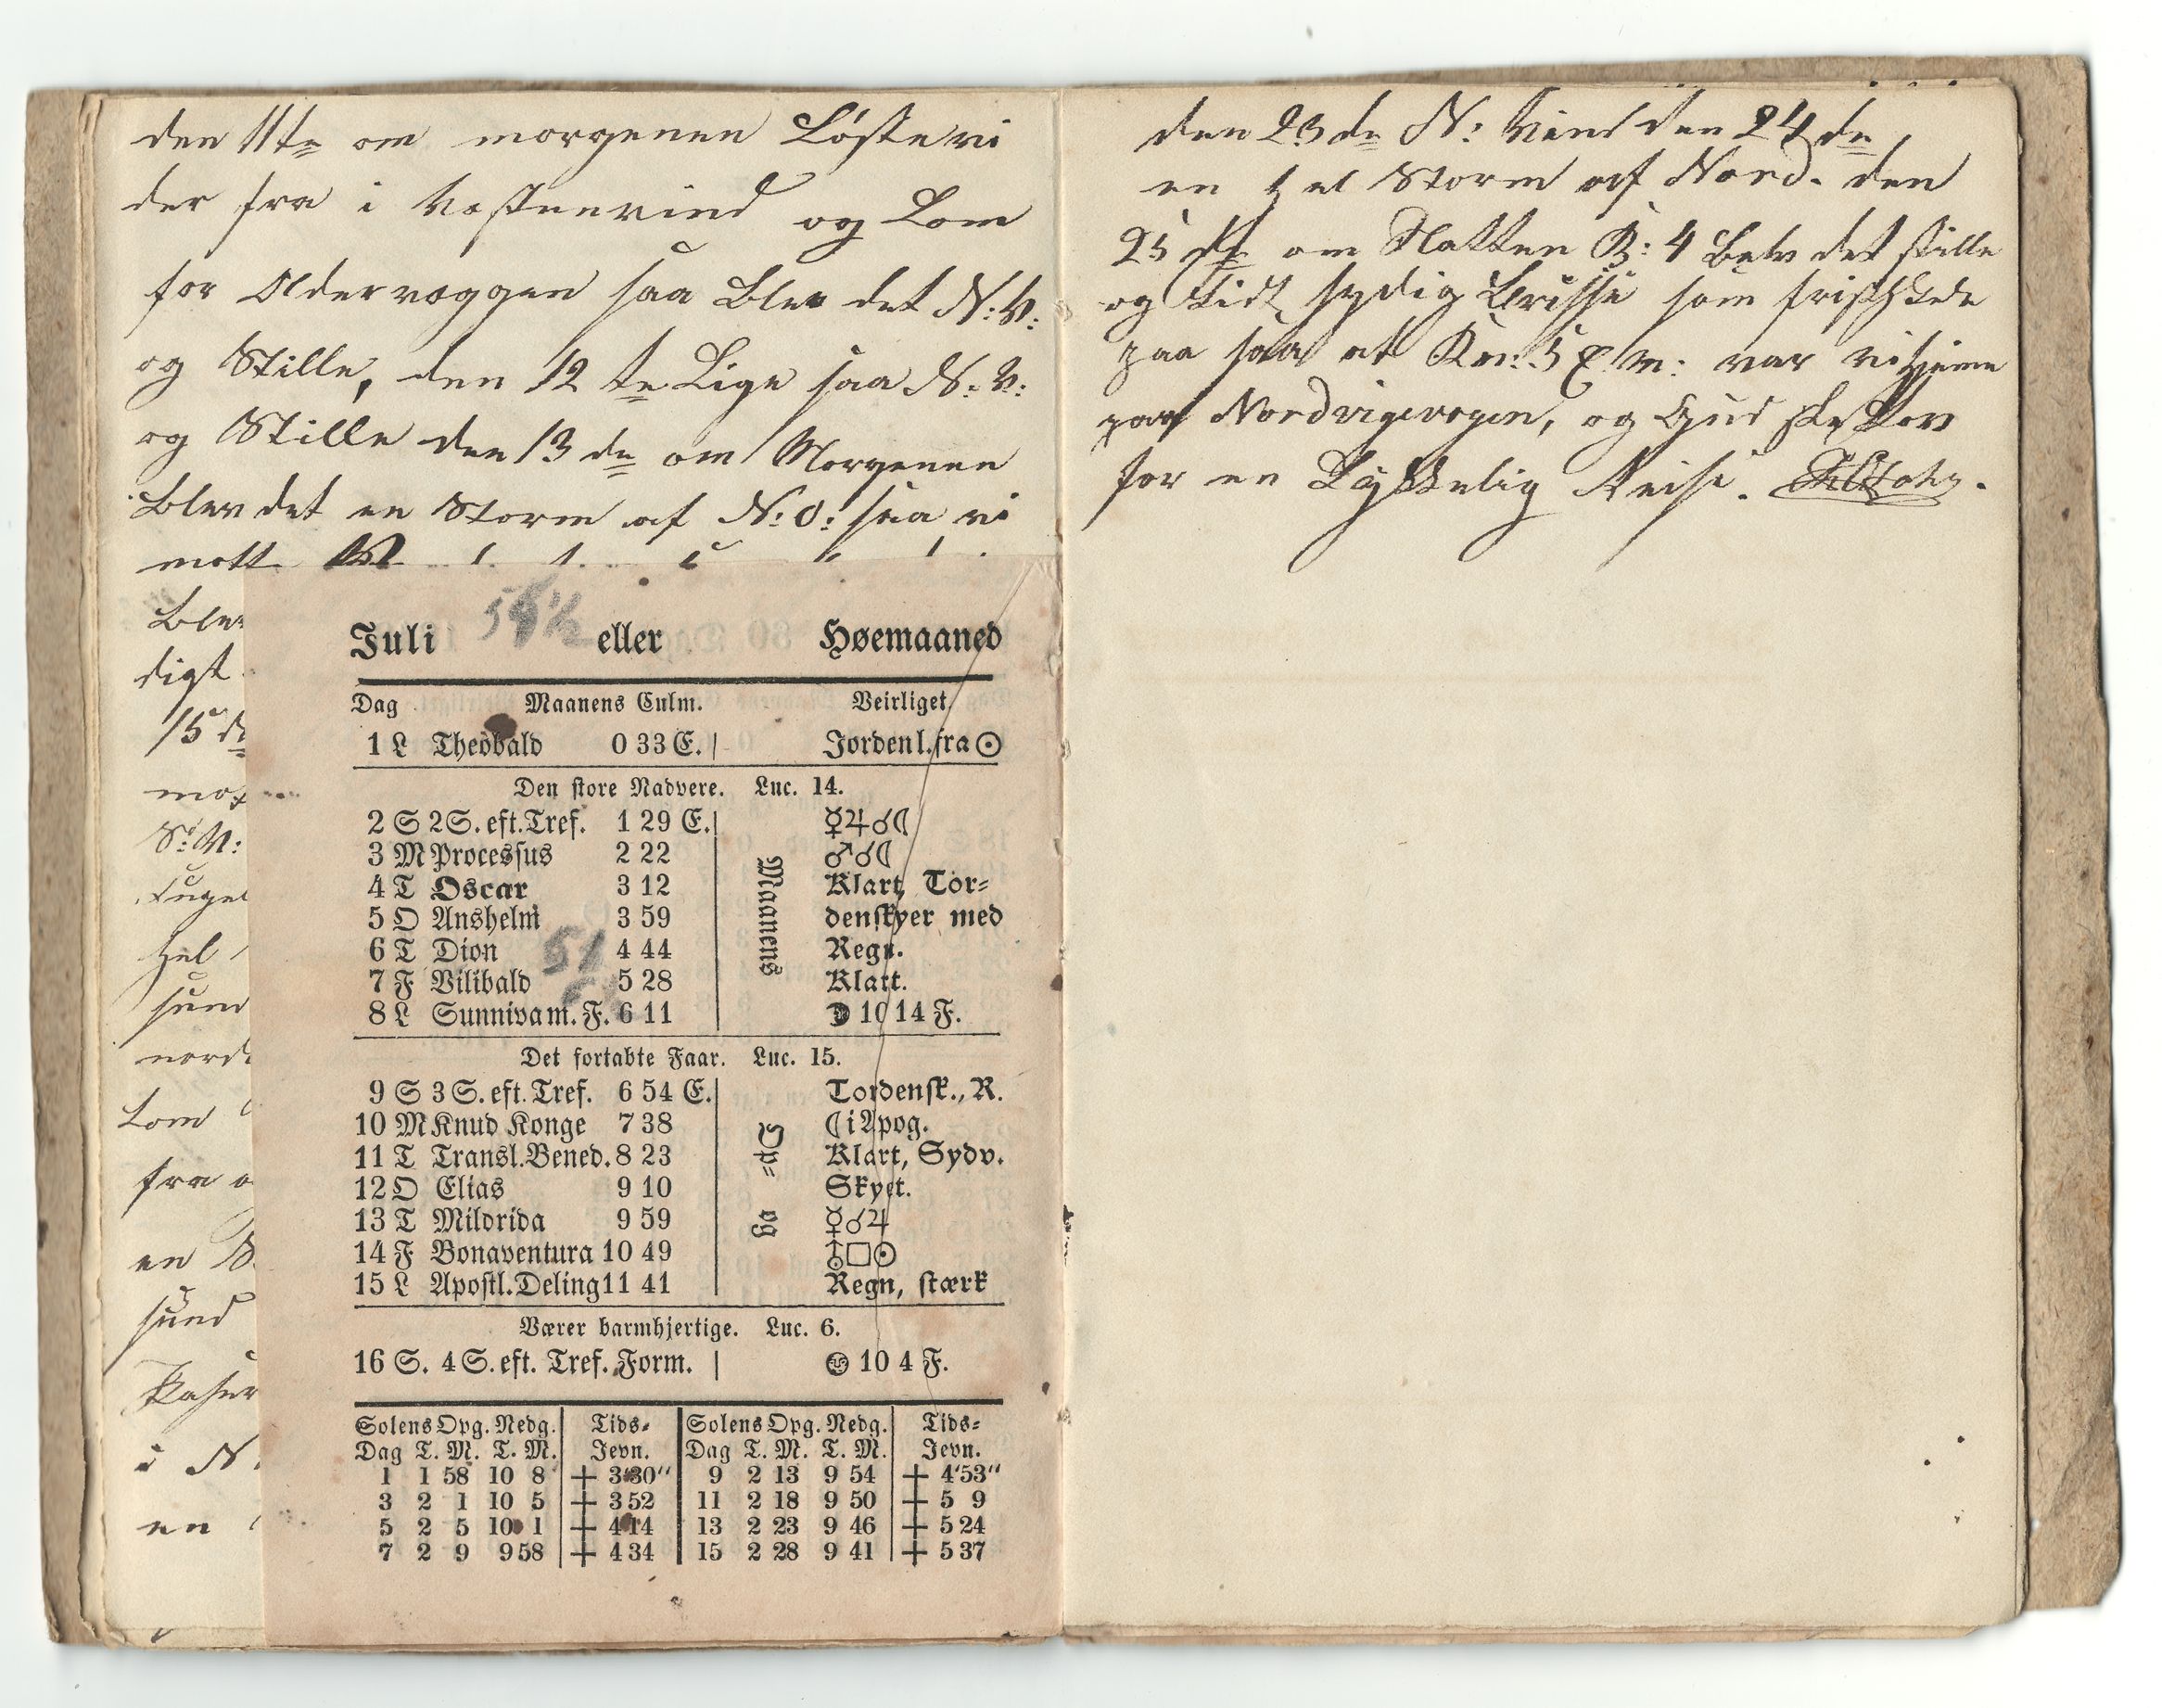 den 11te om morgenen Løste vi
der fra i Vestenvind og kom
for Oldervæggen saa Blev det N:V:
og Stille, den 12te Lige saa N:V:
og Stille den 13de om Morgenen
Blev det en Storm af N:O: saa vi
mott
Blev
digt
15de
mo
S:V:
hel
sund
nord
kom
fra
en
sund
i N
en
Juli 54½ eller Høemaaned
Dag Maanens Culm. Veirliget
1 L Theobald 0 33 E. Jorden l. fra ☉
Den store Nadvere. Luc. 14.
2 S 2S. eft. Tref. 1 29 E. ☿♃☌☾
3 M Processus 2 22 ♂☌☾
4 T Oscar 3 12 Klart, Tor=
5 O Anshelm 3 59 denskyer med
6 T Dion 4 44 Regn.
7 F Vilibald 5 28 Klart.
8 L Sunniva m. F. 6 11 10 14 F.
Maanens
51
Det fortabte Faar. Luc. 15.
9 S 3 S. eft. Tref. 6 54 E. Tordensk., R.
10 M Knud Konge 7 38 ☾ i Apog.
11 T Transl. Bened. 8 23 Klart, Sydv.
12 O Elias 9 10 Skyet.
13 T Mildrida 9 59 ☿☌♃
14 F Bonaventura 10 49 ⛢□☉
15 L Apostl. Deling 11 41 Regn, stærk
Op=
og
Værer barmhjertige. Luc. 6.
16 S. 4 S. eft. Tref. Form. 10 4 F.
Solens Opg. Nedg. Tids= Solens Opg. Nedg. Tids=
Dag T. M. T. M. Jevn. Dag T. M. T. M. Jevn.
1 1 58 10 8 + 3'30" 9 2 13 9 54 + 4'53"
3 2 1 10 5 + 3 52 11 2 18 9 50 + 5 9
5 2 5 10 1 + 4 14 13 2 23 9 46 + 5 24
7 2 9 9 58 + 4 34 15 2 28 9 41 + 5 37
den 23de N: Vind den 24de
en hel Storm af Nord. den
25de om Natten K: 4 Belv det stille
og Lidt sydig Brisse som friskede
paa saa at Km: 5 E.m: var vi hjeme
paa Nordvigevogen, og Gud ske Lov
for en Lykkelig Reise.